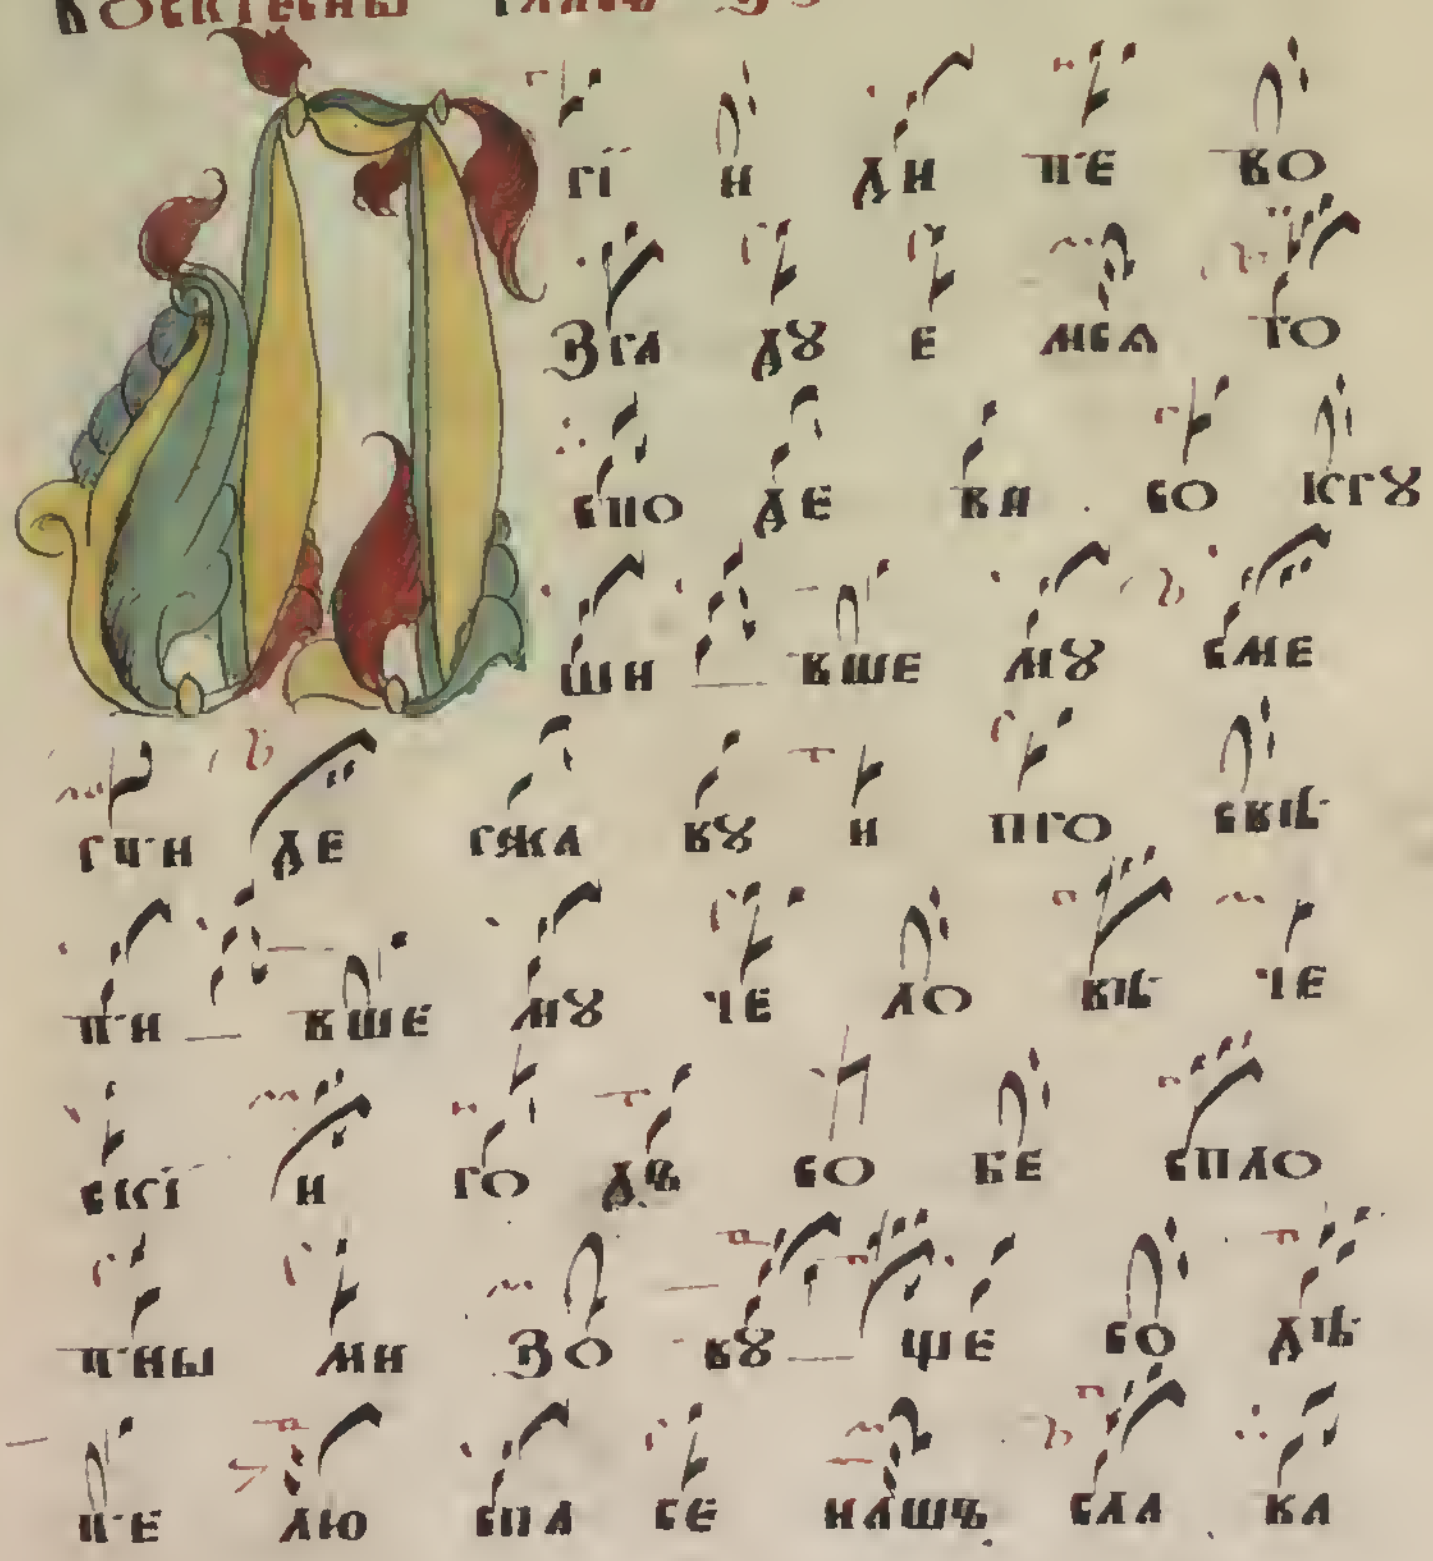 воскресны гласъ
П рі и ди те во
зра дꙋ е мсѧ го
спо де ва со крꙋ
ши вше мꙋ сме
рти де ржа вꙋ и про свѣ
ти вше мꙋ че ло вѣ че
скі и ро дъ со бе спло
тны ми зо вꙋ ще со дѣ
те лю спа се нашъ сла ва